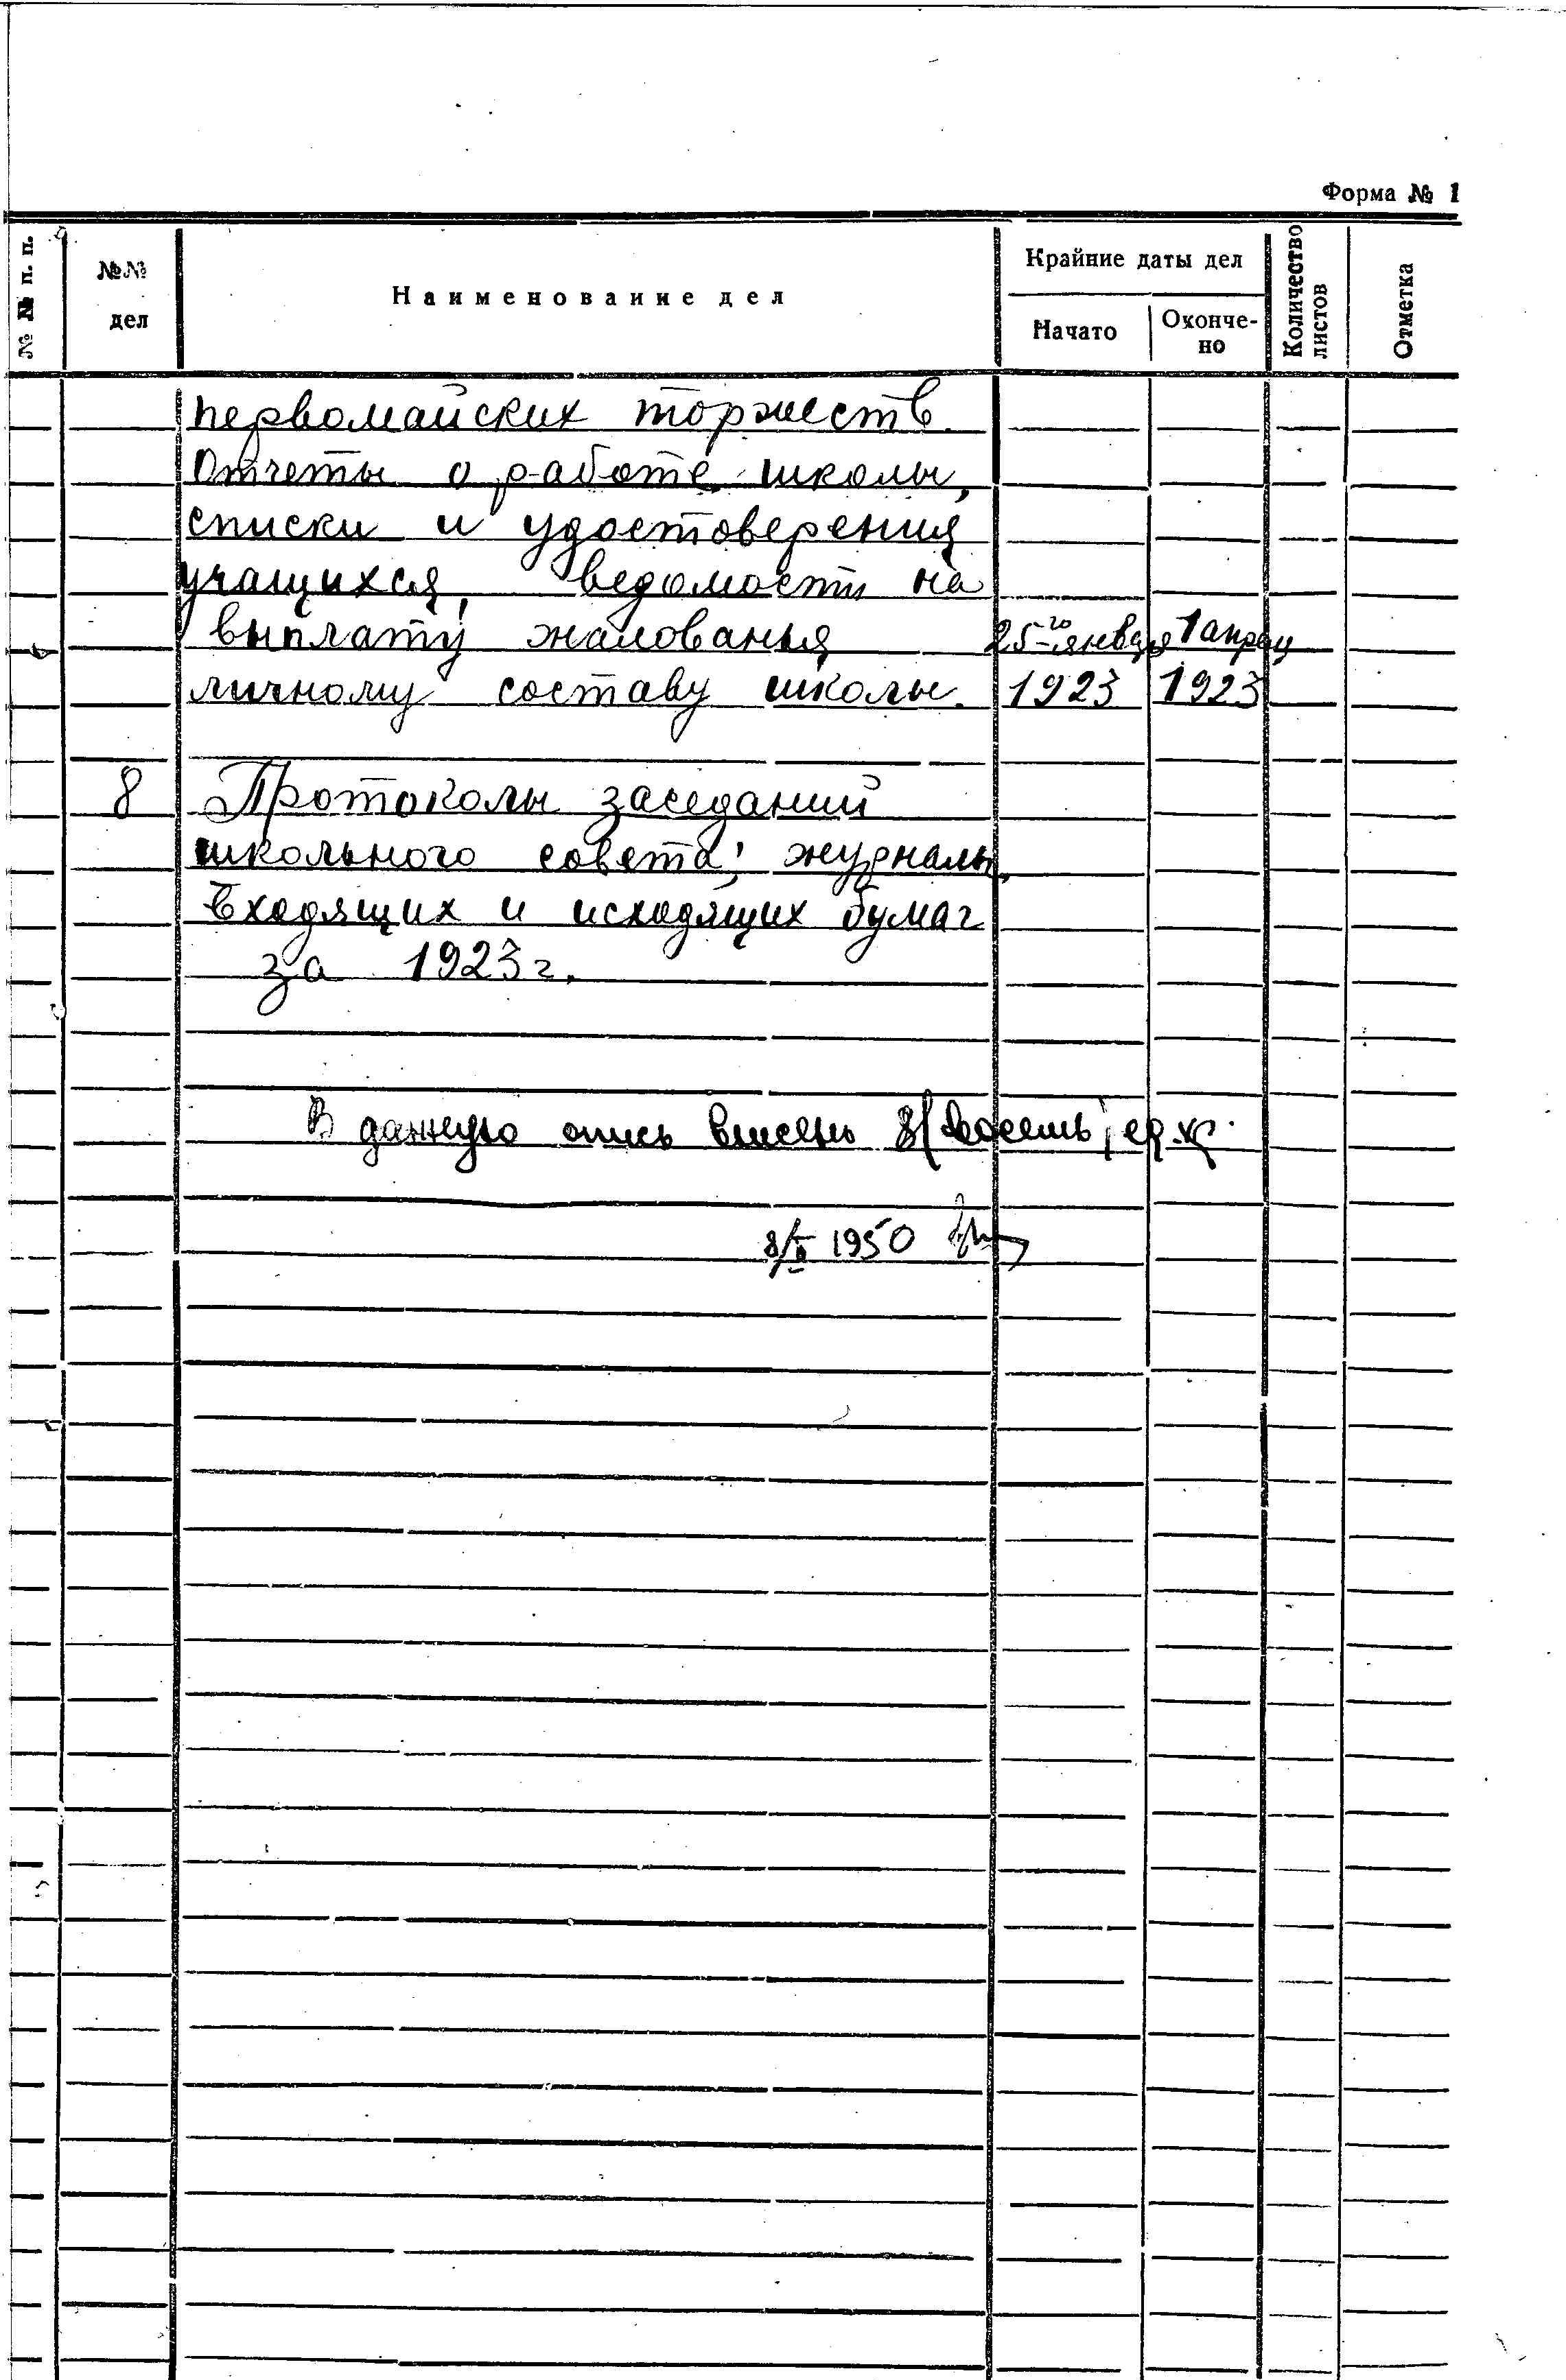 Форма № 1
№ № п. п.
№№ дел
Наименование дел
Крайние даты дел
Начато
Окончено
Количество листов
Отметка
первомайских торжеств.
Отчеты о работе школы,
списки и удостоверения
учащихся, ведомости на
выплату жалованья 25-го января 1 апрел
личному составу школы. 1923 1923
8 Протоколы заседаний
школьного совета; журналы
входящих и исходящих бумаг
за 1923 г.
В данную опись внесены 8 (восемь) ед. хр.
1950